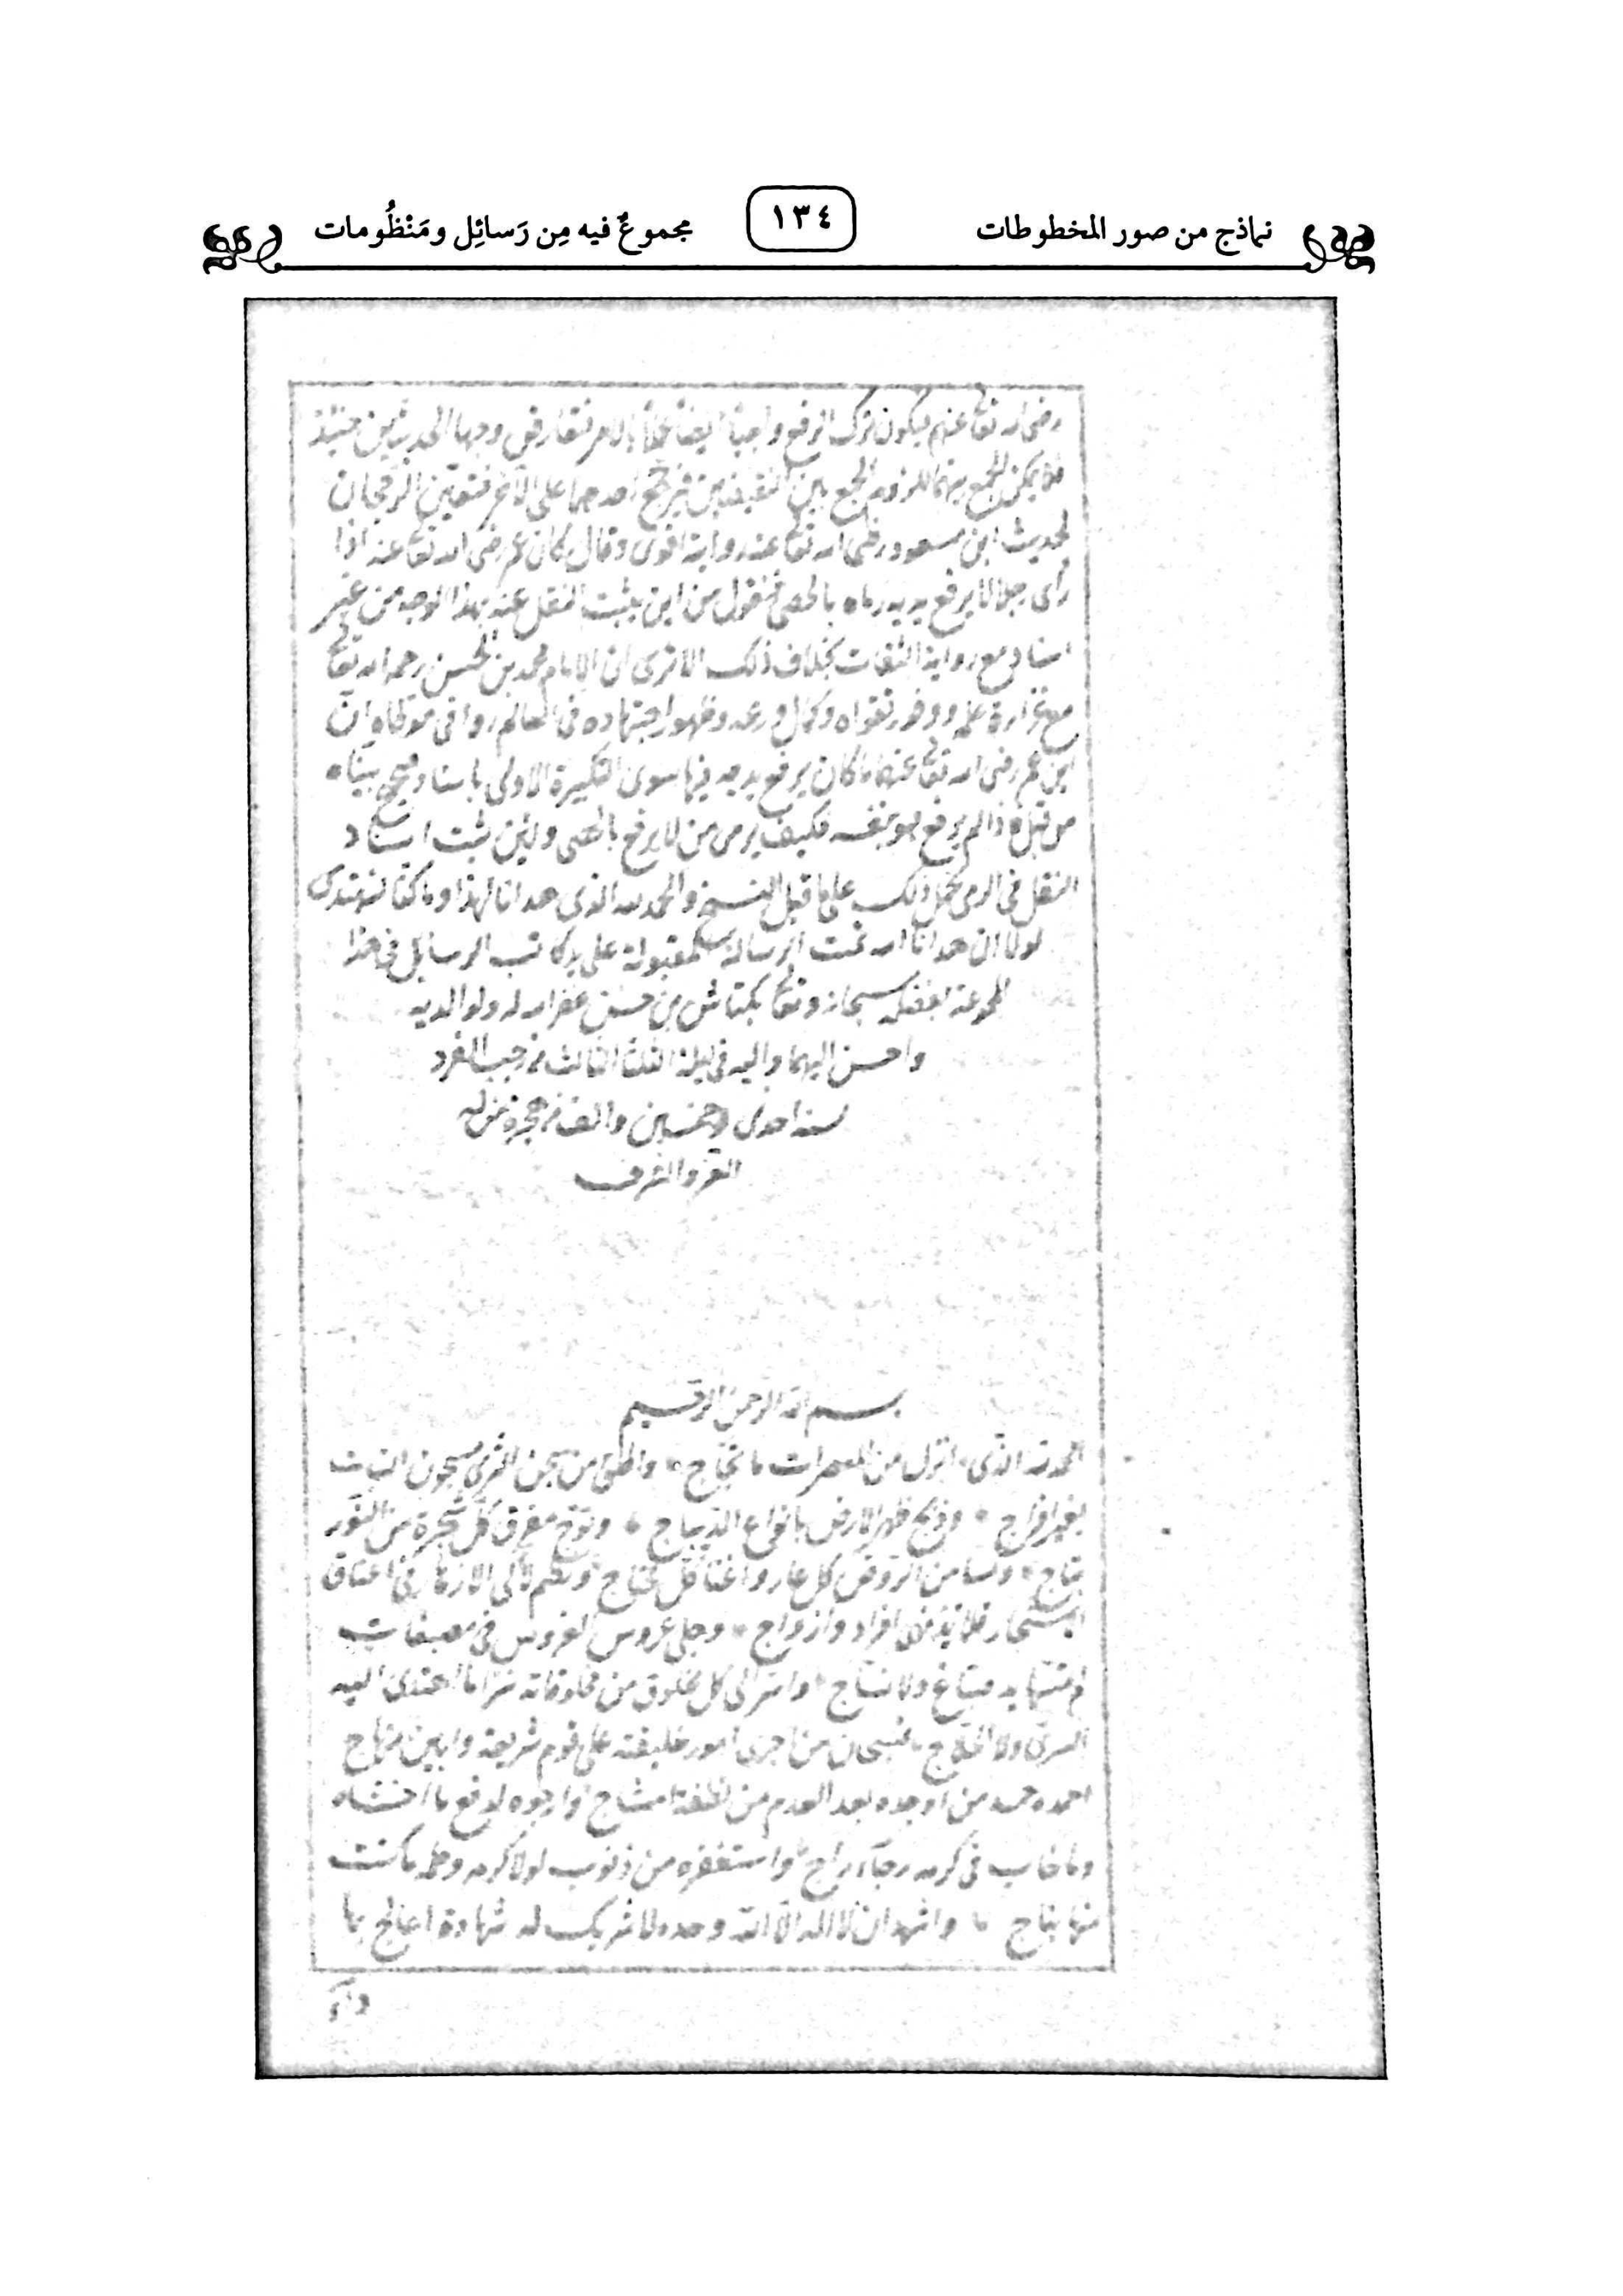 نماذج من صور المخطوطات
١٣٤
مجموعٌ فيه مِن رَسائِل ومَنْظُومات
رضى الله تعا عنهم فيكون ترك الرفع واجبا ايضا عملا بالامر فتعارض وجها الحديثين حينئذ
فلا يمكن الجمع بينهما للزوم الجمع بين النقيضين فيرجح احدهما على الآخر فتعين الرجحان
لحديث ابن مسعود رضى الله تعا عنه رواية اقوى وقال كان عمر رضى الله تعا عنه اذا
رأى رجلا لا يرفع يديه رماه بالحصى فنقول من اين يثبت النقل عنه بهذا الوجه من غير
اسناد مع رواية الثقات بخلاف ذلك الا ترى ان الامام محمد بن الحسن رحمه الله تعا
مع غزارة علمه ووفور تقواه وكمال ورعه وظهور اجتهاده فى العالم روا فى موطاه ان
ابن عمر رضى الله تعا عنهما ما كان يرفع يديه فيما سوى التكبيرة الاولى باسناد صحيح بيناه
من قبل فاذا لم يرفع هو بنفسه فكيف يرمى من لا يرفع بالحصى ولئن ثبت اسناد
النقل فى الرمى يحمل ذلك على ما قبل النسخ والحمد لله الذى هدانا لهذا وما كنا لنهتدى
لولا ان هدانا الله تمت الرسالة المقبولة على يد كاتب الرسايل فى هذا
المجموعة بفضله سبحانه وتعا بكتاش بن حسن غفر الله له ولوالديه
واحسن اليهما واليه فى ليلة الثلثا الثالث من رجب الفرد
سنه احدى وخمسين والف من هجرة من له
العز والشرف
بسم الله الرحمن الرحيم
الحمد لله الذى انزل من المعصرات ما ثجاج واطلق من سجن الثرى مسجون النبات
بغير افراج ودبج ظهر الارض بانواع الديباج وتوج مفرق كل شجرة من النور
بتاج وكسا من الروض كل عار واغنا كل محتاج ونظم لآلى الازهار فى اعناق
الاشجار افراد وازواج وجلى عروس الغروس فى
صباغ ولا نساج كل مخلوق من مخلوقاته سرا ما اهتدى اليه
السرى ولا الحلاج فسبحان من اجرى امور خليقته على قوم شريعة وابين منهاج
احمده حمد من اوجده بعد العدم من نطفة امشاج وارجوه لدفع ما اخشاه
وما خاب فى كرمه رجاء راج واستغفره من ذنوب لولا كرمه وحلمه ما كنت
منها بناج واشهد ان لا اله الا الله وحده لا شريك له شهادة اعالج بها
داء